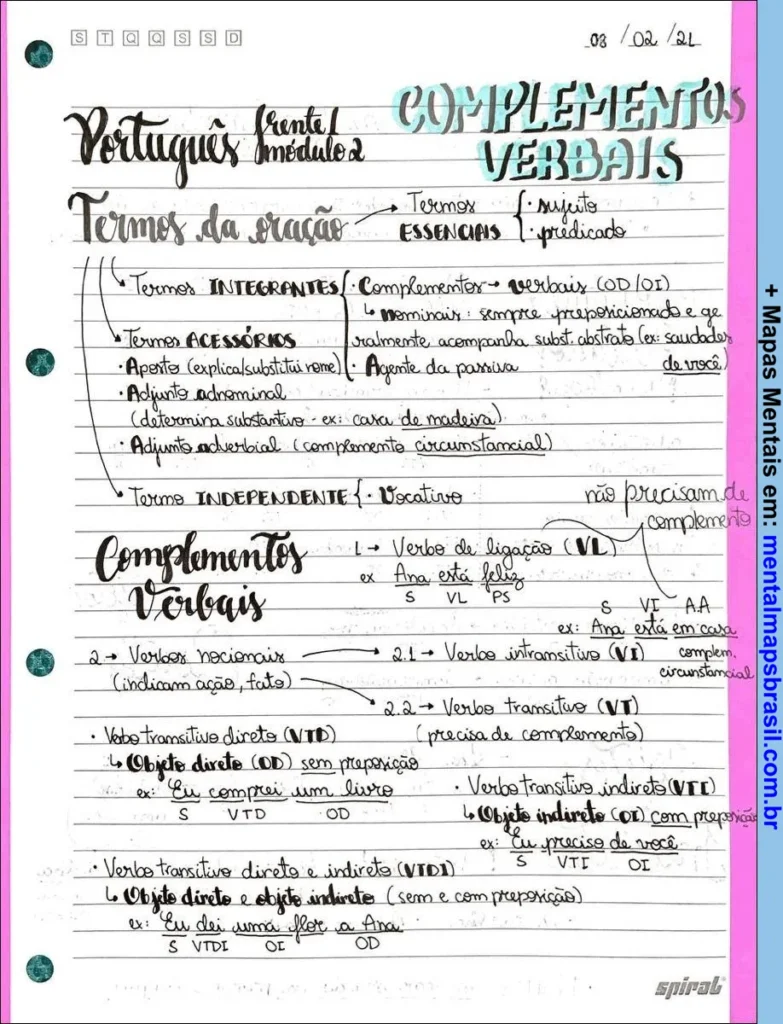 S T Q Q S S D
03 / 02 / 21
Português frente 1
módulo 2
COMPLEMENTOS
VERBAIS
Termos da oração → Termos ESSENCIAIS { · sujeito
· predicado
Termos INTEGRANTES { · Complementos → verbais (OD/OI)
↳ nominais: sempre preposicionado e ge
ralmente acompanha subst. abstrato (ex: saudades
de você)
· Agente da passiva
Termos ACESSÓRIOS
· Aposto (explica/substitui nome)
· Adjunto adnominal
(determina substantivo - ex: casa de madeira)
· Adjunto adverbial (complemento circunstancial)
Termo INDEPENDENTE { · Vocativo
não precisam de
complemento
Complementos
Verbais
1 → Verbo de ligação (VL)
ex Ana está feliz
S VL PS
S VI A.A
ex: Ana está em casa
complem.
circunstancial
2 → Verbos nocionais → 2.1 → Verbo intransitivo (VI)
(indicam ação, fato) → 2.2 → Verbo transitivo (VT)
(precisa de complemento)
· Verbo transitivo direto (VTD)
↳ Objeto direto (OD) sem preposição
ex: Eu comprei um livro
S VTD OD
· Verbo transitivo indireto (VTI)
↳ Objeto indireto (OI) com preposição
ex: Eu preciso de você
S VTI OI
· Verbo transitivo direto e indireto (VTDI)
↳ Objeto direto e objeto indireto (sem e com preposição)
ex: Eu dei uma flor a Ana.
S VTDI OI OD
spiral
+ Mapas Mentais em: mentalmapsbrasil.com.br